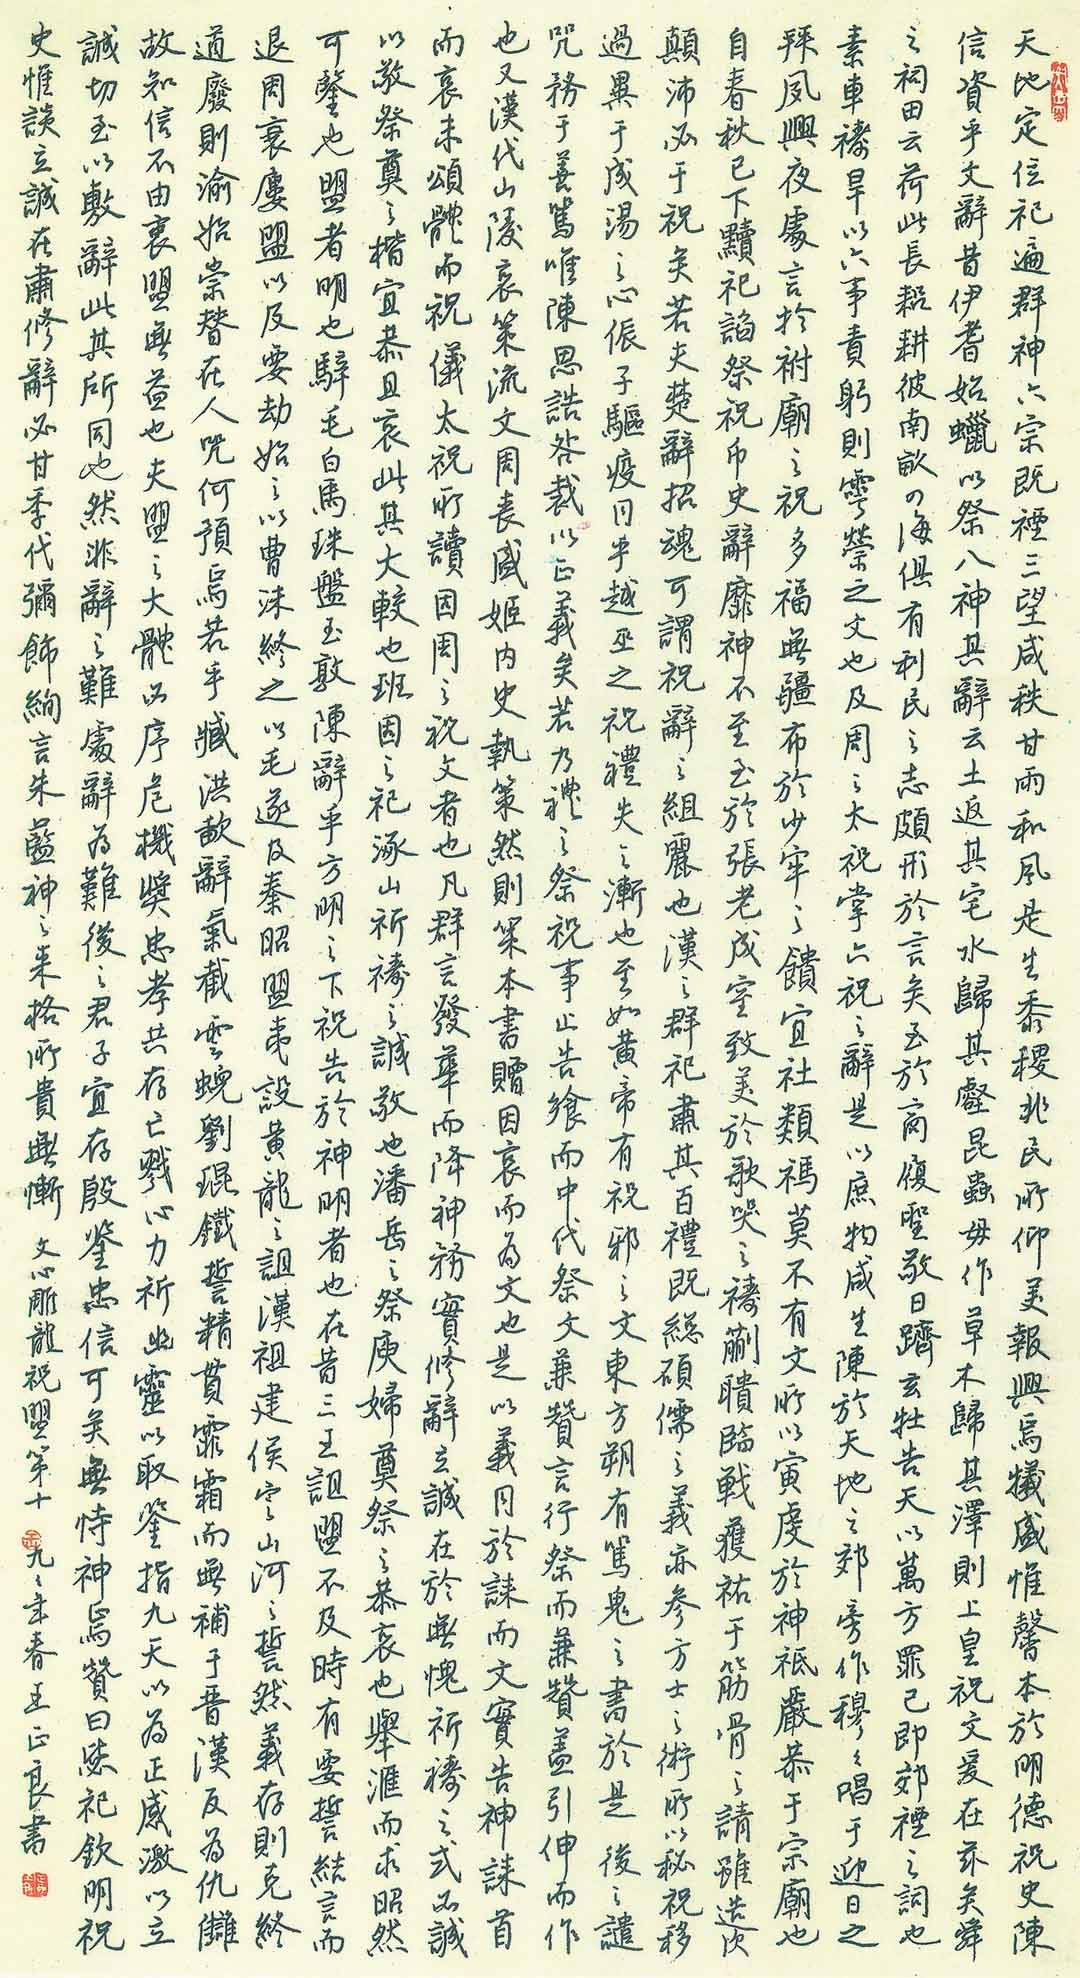 天地定位祀遍群神六宗既禋三望咸秩甘雨和風是生黍稷兆民所仰美報興焉犧盛惟馨本於明德祝史陳
信資乎文辭昔伊耆始蠟以祭八神其辭云土返其宅水歸其壑昆蟲毋作草木歸其澤則上皇祝文爰在茲矣舜
之祠田云荷此長耜耕彼南畝四海俱有利民之志頗形於言矣至於商履聖敬日躋玄牡告天以萬方罪己即郊禋之詞也
素車禱旱以六事責躬則雩禜之文也及周之太祝掌六祝之辭是以庶物咸生陳於天地之郊旁作穆穆唱于迎日之
拜夙興夜處言於祔廟之祝多福無疆布於少牢之饋宜社類禡莫不有文所以寅虔於神祇嚴恭于宗廟也
自春秋已下黷祀諂祭祝币史辭靡神不至至於張老成室致美於歌哭之禱蒯聵臨戰獲祐于筋骨之請雖造次
顛沛必于祝矣若夫楚辭招魂可謂祝辭之組麗也漢之群祀肅其百禮既總碩儒之義亦參方士之術所以秘祝移
過異于成湯之心侲子驅疫同乎越巫之祝禮失之漸也至如黃帝有祝邪之文東方朔有罵鬼之書於是後之譴
咒務于善罵唯陳思誥咎裁以正義矣若乃禮之祭祝事止告饗而中代祭文兼贊言行祭而兼贊蓋引伸而作
也又漢代山陵哀策流文周喪盛姬內史執策然則策本書贈因哀而為文也是以義同於誄而文實告神誄首
而哀末頌體而祝儀太祝所讀因周之祝文者也凡群言發華而降神務實修辭立誠在於無愧祈禱之式必誠
以敬祭奠之楷宜恭且哀此其大較也班固之祀涿山祈禱之誠敬也潘岳之祭庾婦奠祭之恭哀也舉滙而求昭然
可鑒也盟者明也騂毛白馬珠盤玉敦陳辭乎方明之下祝告於神明者也在昔三王詛盟不及時有要誓結言而
退周衰屢盟以及要劫始之以曹沫終之以毛遂及秦昭盟夷設黃龍之詛漢祖建侯定山河之誓然義存則克終
道廢則渝始崇替在人咒何預焉若乎臧洪歃辭氣截雲蜺劉琨鐵誓精貫霏霜而無補于晉漢反為仇讎
故知信不由衷盟無益也夫盟之大體必序危機獎忠孝共存亡戮心力祈幽靈以取鑒指九天以為正感激以立
誠切至以敷辭此其所同也然非辭之難處辭為難後之君子宜存殷鑒忠信可矣無恃神焉贊曰毖祀欽明祝
史惟談立誠在肅修辭必甘季代彌飾絢言朱藍神之来格所貴無慚 文心雕龍祝盟第十 九九年春王正良書